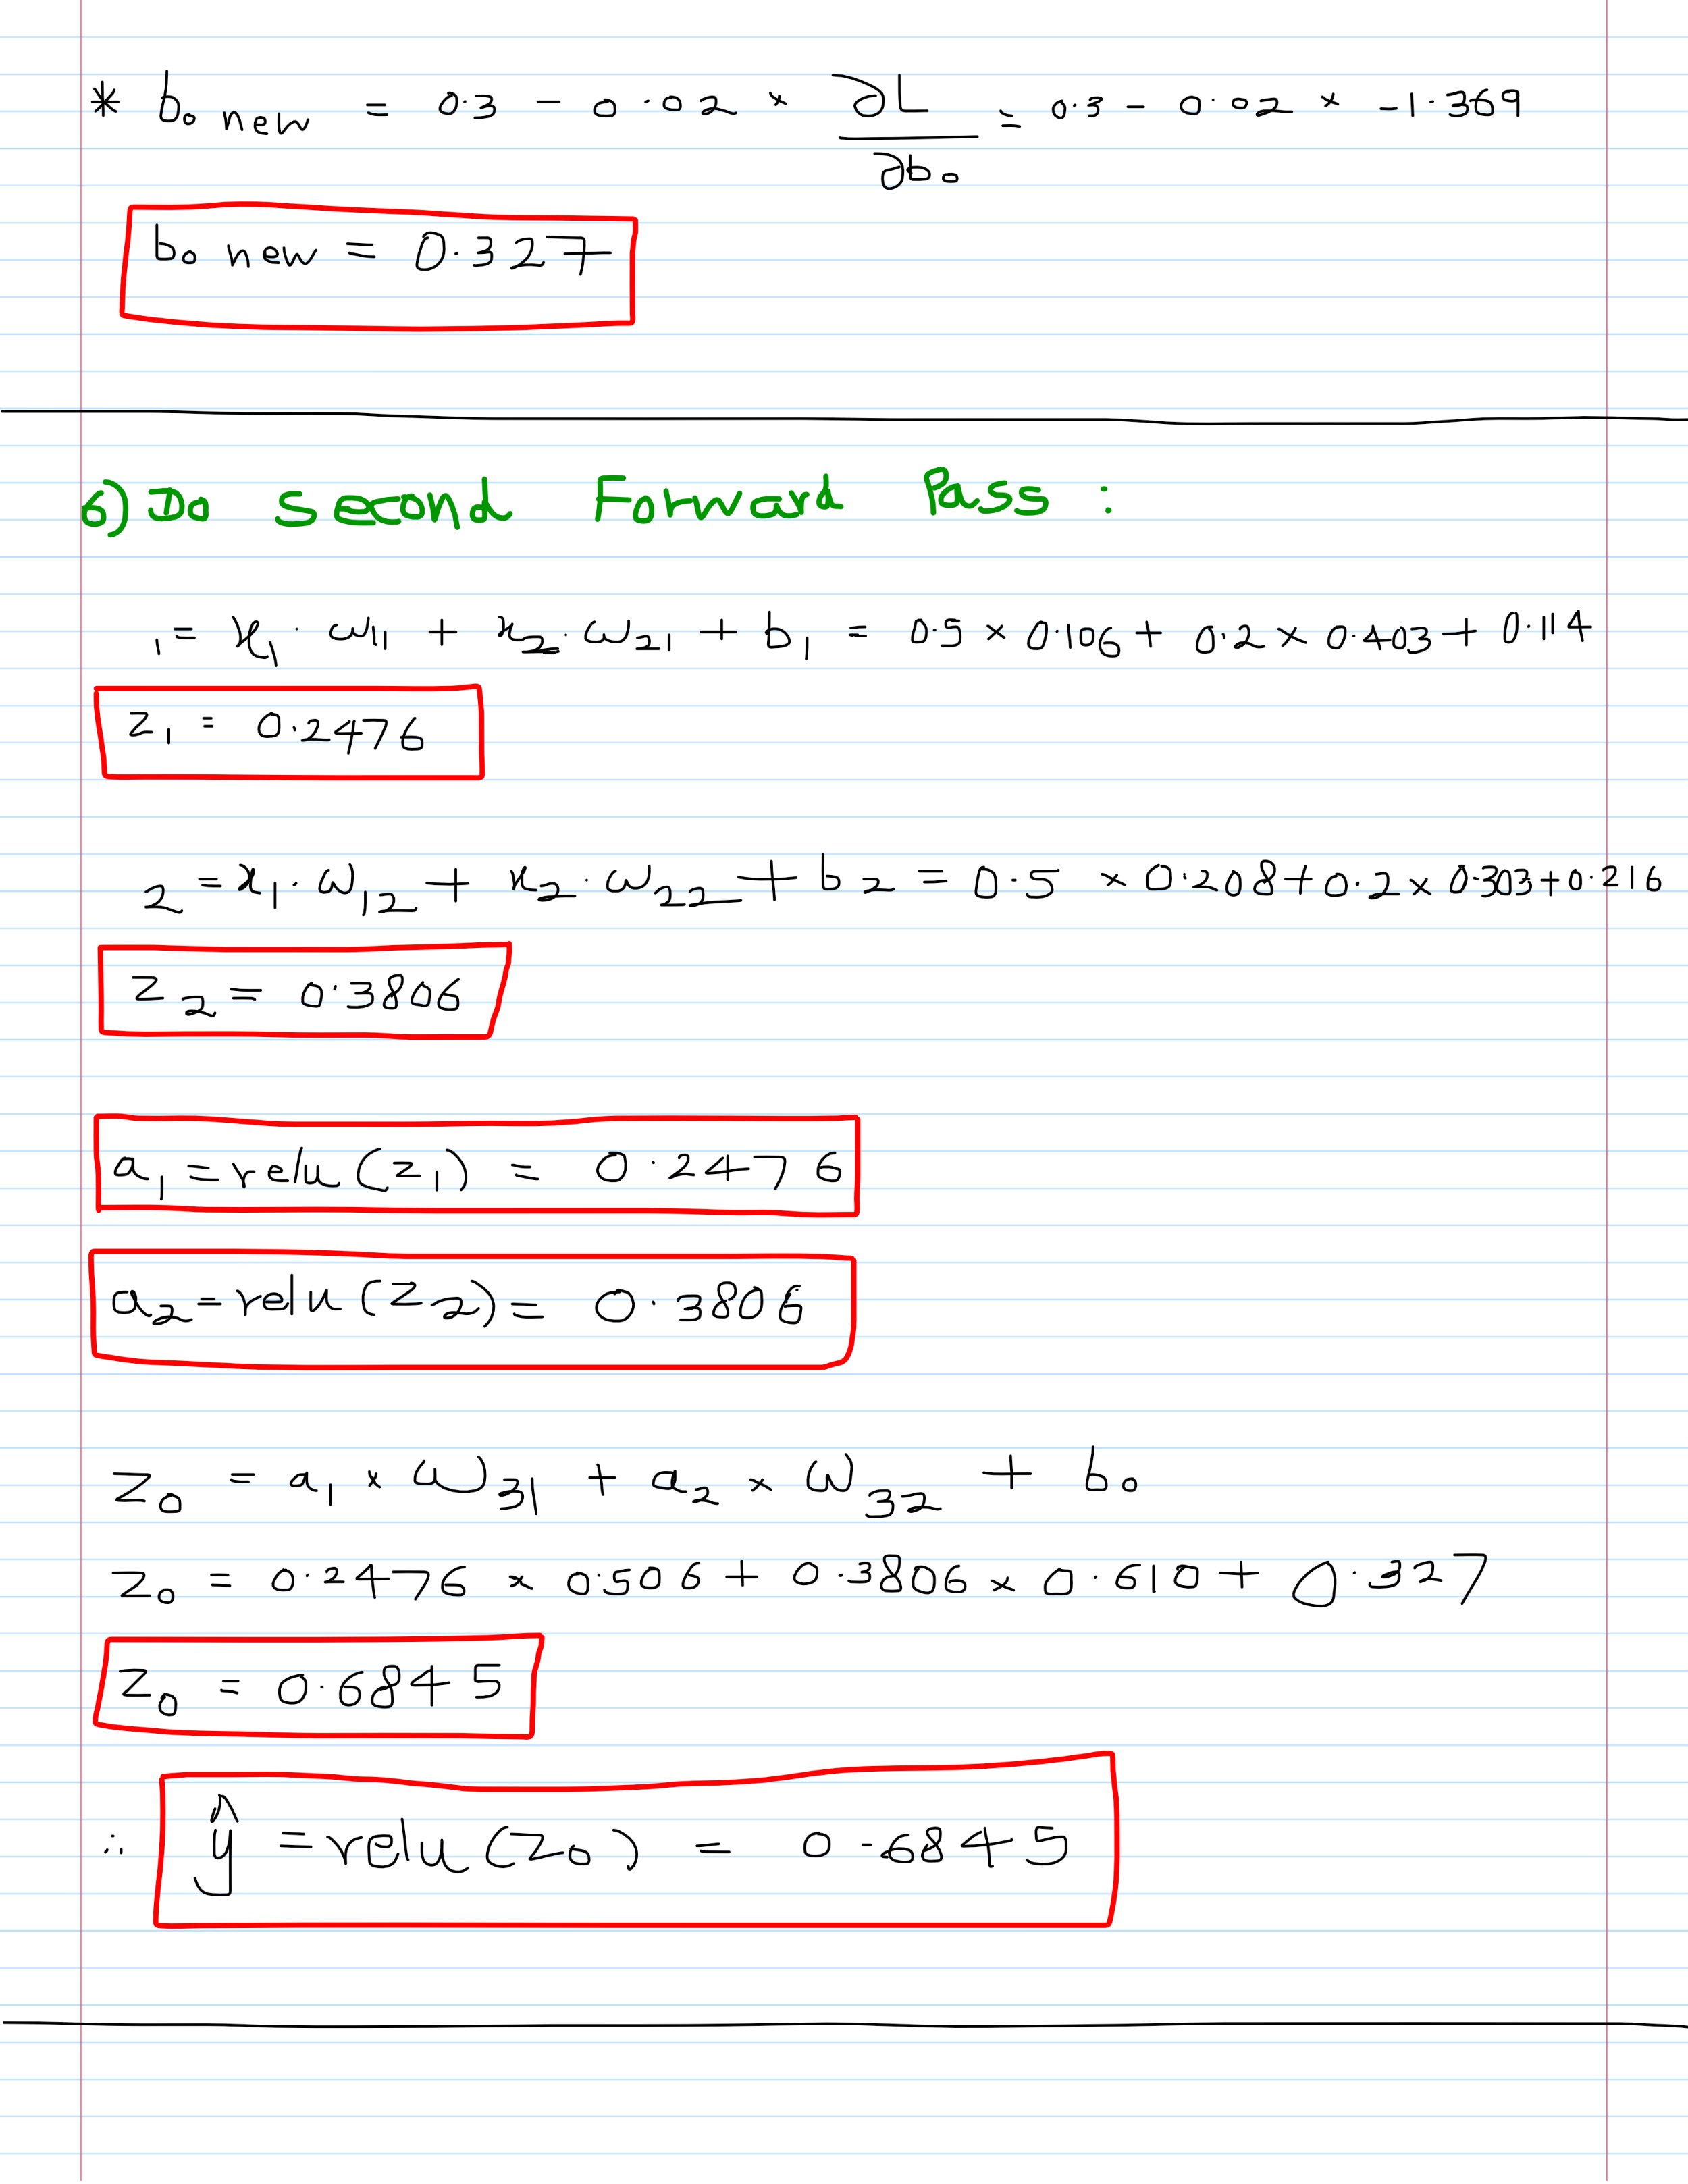 * b₀ new = 0.3 - 0.02 × ∂L/∂b₀ = 0.3 - 0.02 × -1.369
b₀ new = 0.327
6) Do second Forward Pass :
₁ = x₁ · ω₁₁ + x₂ · ω₂₁ + b₁ = 0.5 × 0.106 + 0.2 × 0.403 + 0.114
z₁ = 0.2476
₂ = x₁ · ω₁₂ + x₂ · ω₂₂ + b₂ = 0.5 × 0.208 + 0.2 × 0.303 + 0.216
z₂ = 0.3806
a₁ = relu (z₁) = 0.2476
a₂ = relu (z₂) = 0.3806
z₀ = a₁ × ω₃₁ + a₂ × ω₃₂ + b₀
z₀ = 0.2476 × 0.506 + 0.3806 × 0.610 + 0.327
z₀ = 0.6845
∴ ŷ = relu (z₀) = 0.6845